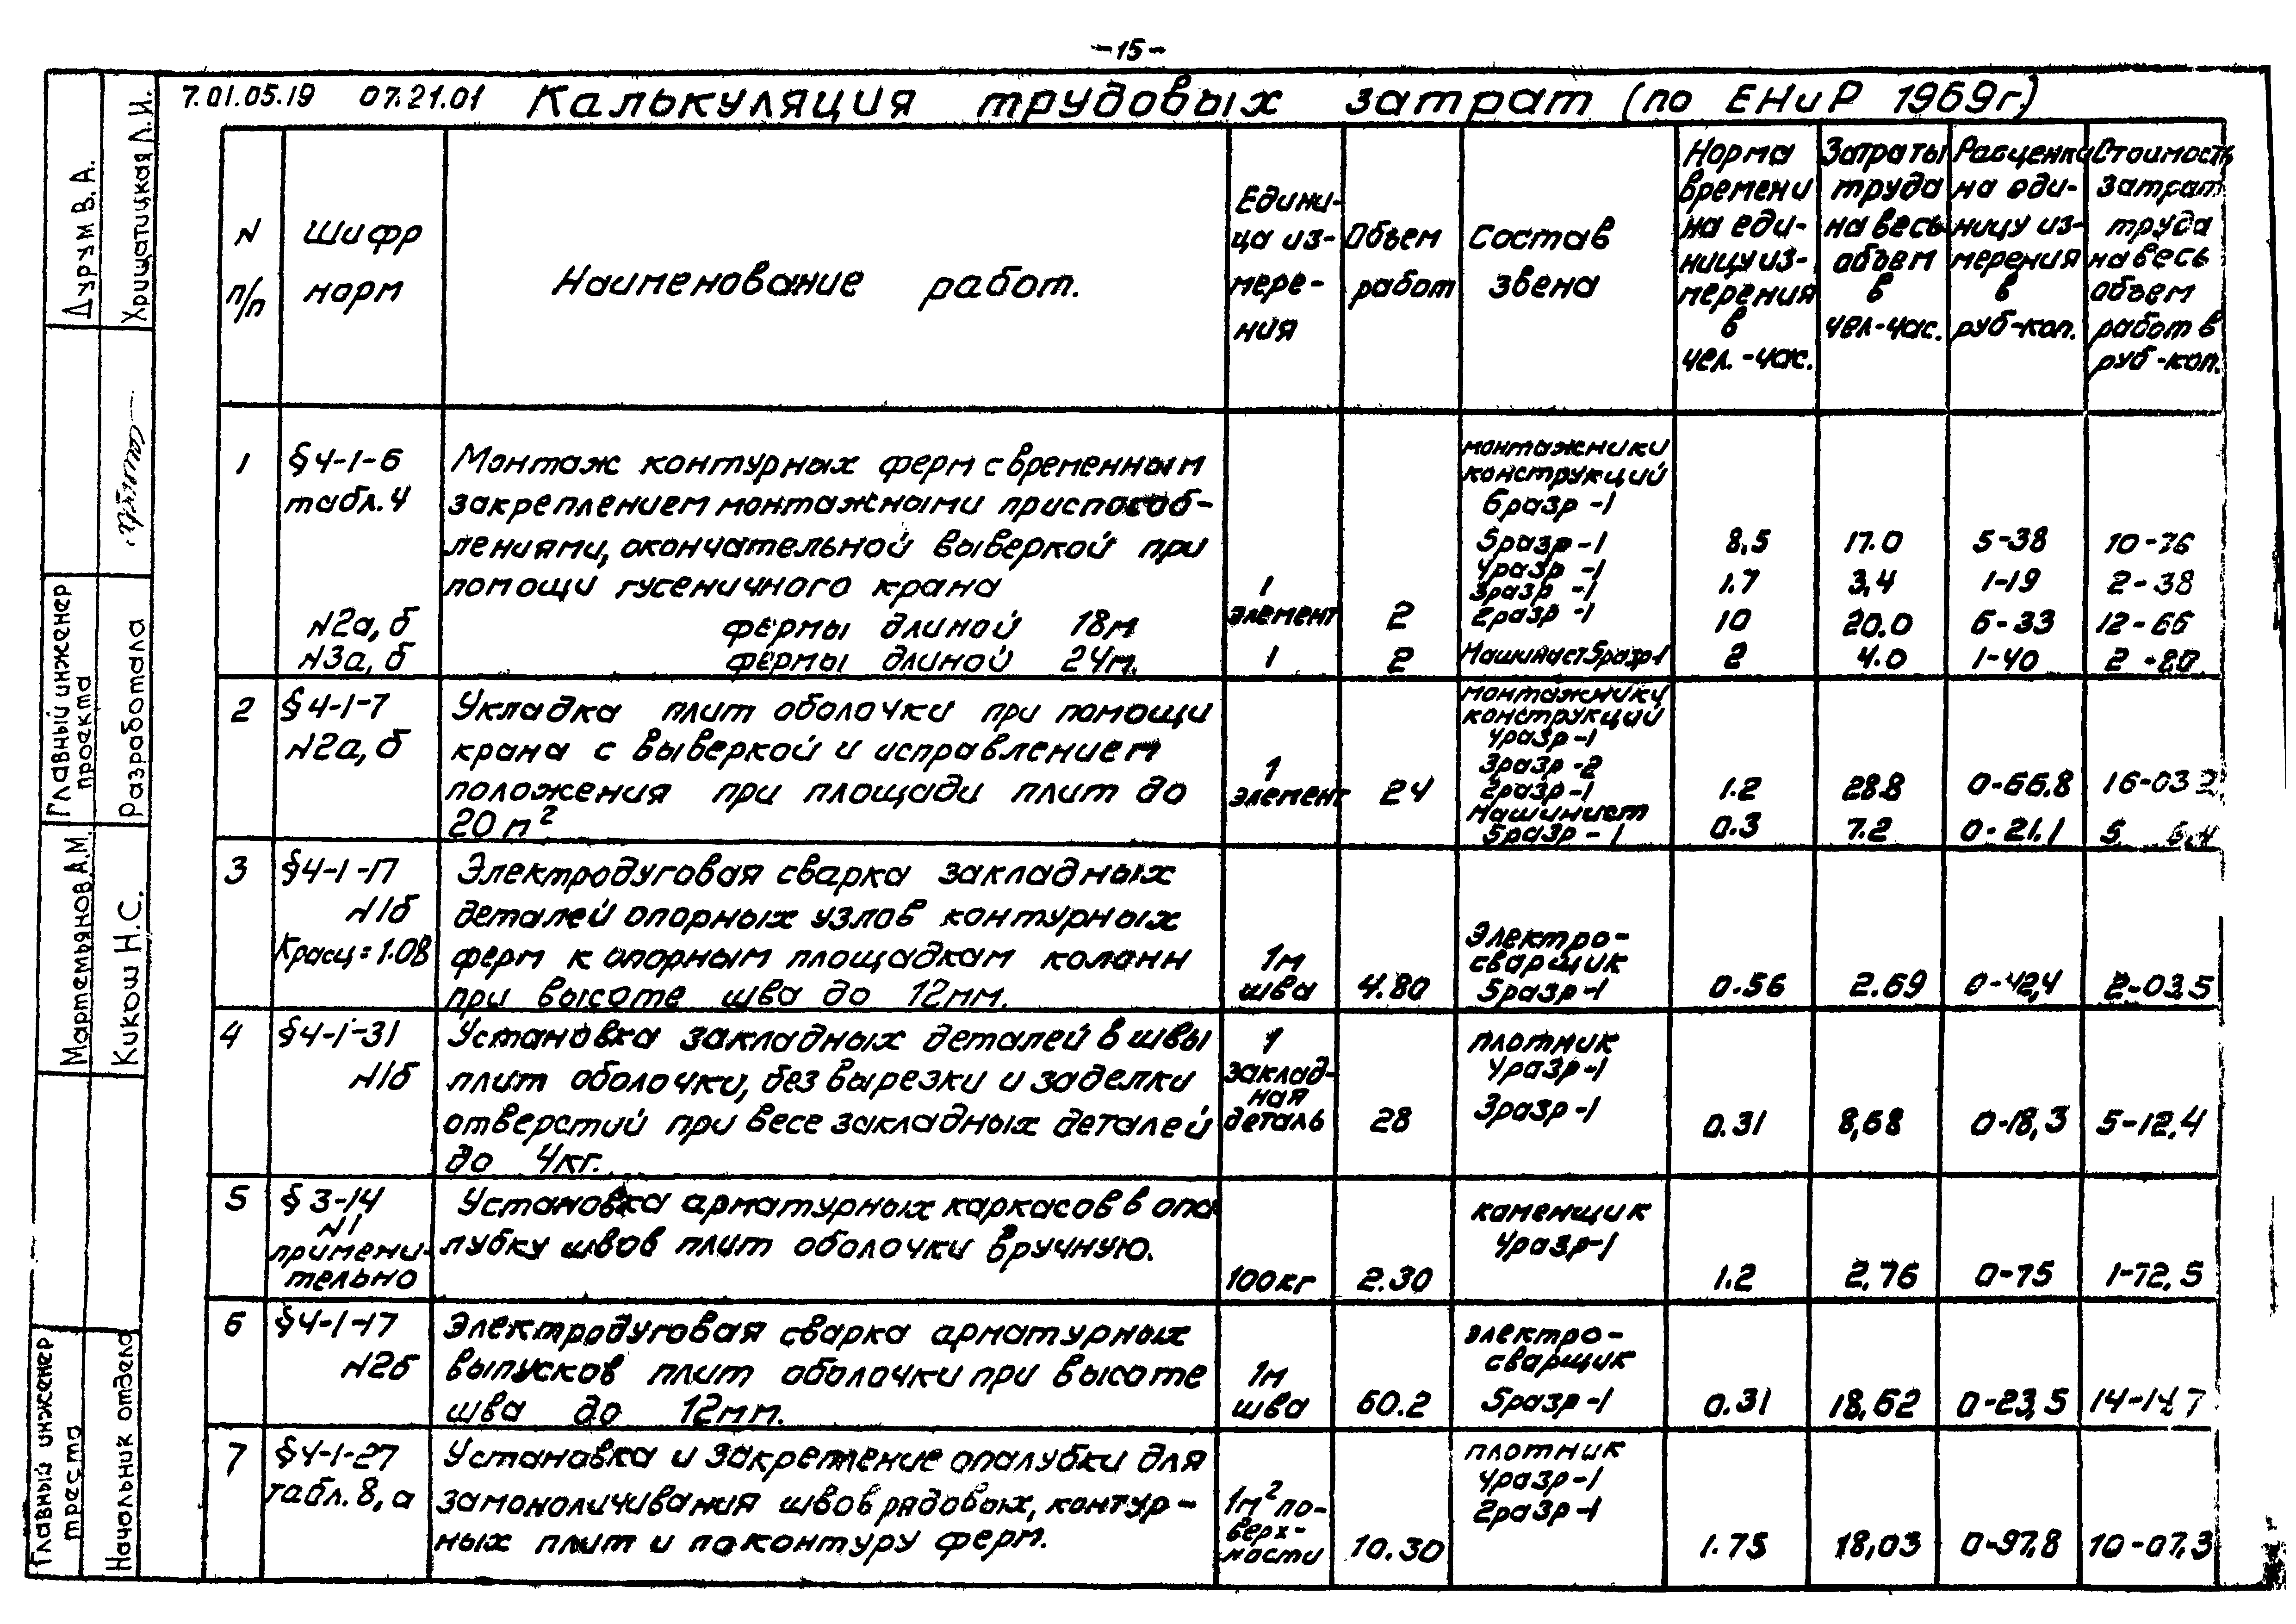 -15-
7.01.05.19 07.21.01 Калькуляция трудовых затрат (по ЕНиР 1969г.)
N п/п
Шифр норм
Наименование работ.
Едини-
ца из-
мере-
ния
Объем
работ
Состав
звена
Норма
времени
на еди-
ницу из-
мерения
в
чел.-час.
Затраты
труда
на весь
объем
в
чел-час.
Расценка
на еди-
ницу из-
мерения
в
руб-коп.
Стоимость
затрат
труда
на весь
объем
работ в
руб-коп.
1
§4-1-6
табл.4
N2а,б
N3а,б
Монтаж контурных ферм с временным
закреплением монтажными приспособ-
лениями, окончательной выверкой при
помощи гусеничного крана
фермы длиной 18м
фермы длиной 24м.
1
элемент
1
2
2
монтажники
конструкций
6разр-1
5разр-1
4разр-1
3разр-1
2разр-1
Машинист5разр-1
8,5 17.0 5-38 10-76
1.7 3,4 1-19 2-38
10 20.0 6-33 12-66
2 4.0 1-40 2-80
2
§4-1-7
N2а,б
Укладка плит оболочки при помощи
крана с выверкой и исправлением
положения при площади плит до
20м²
1
элемент
24
монтажники
конструкций
4разр-1
3разр-2
2разр-1
Машинист
5разр-1
1.2 28.8 0-66.8 16-03 2
0.3 7.2 0-21.1 5
3
§4-1-17
N1б
Красц=1.08
Электродуговая сварка закладных
деталей опорных узлов контурных
ферм к опорным площадкам колонн
при высоте шва до 12мм.
1м
шва
4.80
Электро-
сварщик
5разр-1
0.56 2.69 0-42,4 2-03,5
4
§4-1-31
N1б
Установка закладных деталей в швы
плит оболочки, без вырезки и заделки
отверстий при весе закладных деталей
до 4кг.
1
заклад-
ная
деталь
28
плотник
4разр-1
3разр-1
0.31 8,68 0-18,3 5-12,4
5
§3-14
N1
примени-
тельно
Установка арматурных каркасов в опа
лубку швов плит оболочки вручную.
100кг
2.30
каменщик
4разр-1
1.2 2,76 0-75 1-72,5
6
§4-1-17
N2б
Электродуговая сварка арматурных
выпусков плит оболочки при высоте
шва до 12мм.
1м
шва
60.2
электро-
сварщик
5разр-1
0.31 18,62 0-23,5 14-14,7
7
§4-1-27
табл.8,а
Установка и закрепление опалубки для
замоноличивания швов рядовых, контур-
ных плит и по контуру ферм.
1м² по-
верх-
ности
10.30
плотник
4разр-1
2разр-1
1.75 18,03 0-97,8 10-07,3
Главный инженер
треста
Начальник отдела
Мартемьянов А.М.
Кикош Н.С.
Главный инженер
проекта
Разработала
Дурум В.А.
Хрищатицкая Л.И.